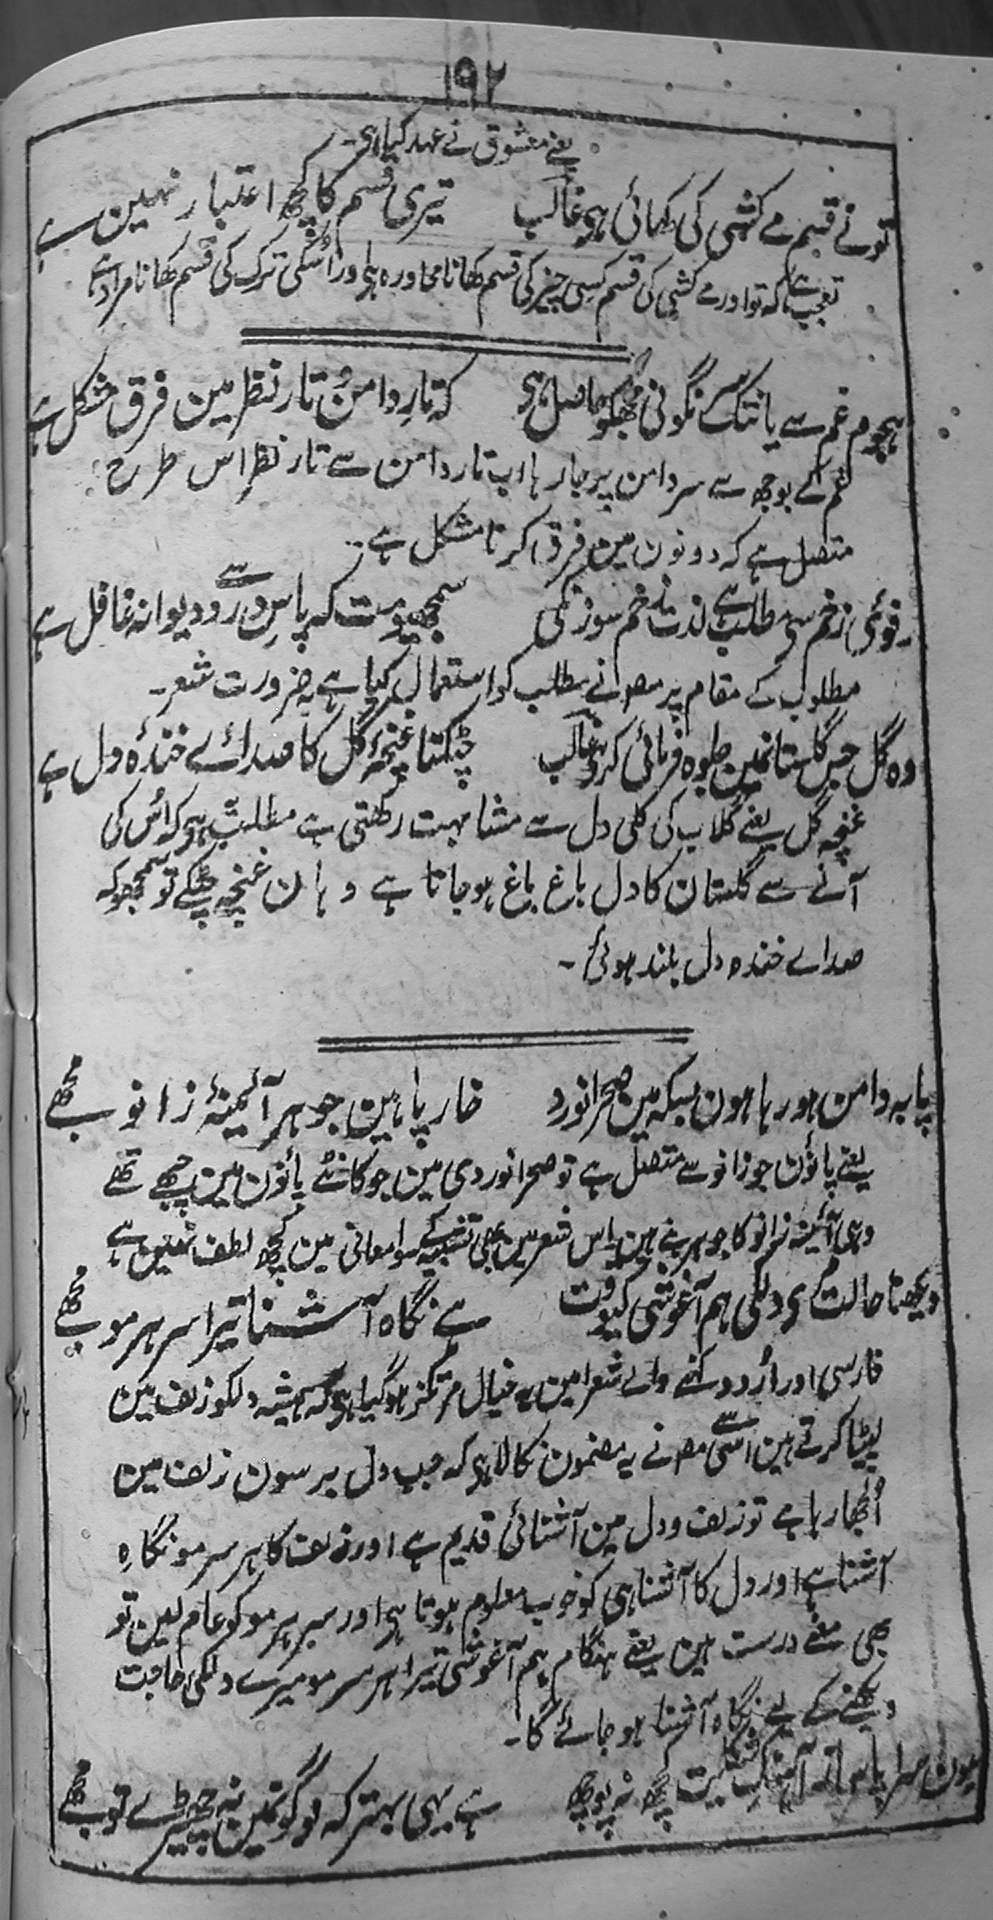 ۱۹۲
یعنے معشوق نے عہد کیا ہی۔
تونے قسم مے کشی کی کھائی ہی غالب تیری قسم کا کچھ اعتبار نہین ہے
تعجب ہے کہ تو اور مے کشی کی قسم کسی چیز کی قسم کھانا محاورہ ہی اور اُسکی ترک کی قسم کھانا مراد ہے
ہجوم غم سے یانتک سرنگونی مجھکو حاصل ہی کہ تارِ دامن و تار نظر مین فرق مشکل ہے
غم کے بوجھ سے سر دامن پر جا رہا اب تار دامن سے تار نظر اس طرح
متصل ہے کہ دونون مین فرق کرنا مشکل ہے۔
رفوئی زخم سی مطلب ہے لذت زخم سوزن کی سمجھیو مت کہ پاسِ درد سے دیوانہ غافل ہے
مطلوب کے مقام پر مصنے مطلب کو استعمال کیا ہے بہ ضرورت شعر۔
وہ گل جس گلستانمین جلوہ فرمائی کرے غالب چٹکنا غنچۂ گل کا صدائے خندہ دل ہے
غنچہ گل یعنے گلاب کی کلی دل سے مشابہت رکھتی ہے مطلب یہ ہو کہ اُس کی
آنے سے گلستان کا دل باغ باغ ہو جاتا ہے وہان غنچہ چٹکے تو سمجھو کہ
صداے خندہ دل بلند ہوئی۔
پا بہ دامن ہو رہا ہون بسکہ مین صحرا نورد خار پا ہین جوہر آئینۂ زانو مجھے
یعنے پاؤن جو زانو سے متصل ہے تو صحرا نوردی مین جو کانٹے پاؤن مین چبھے تھے
وہی آئینہ زانو کا جوہر بنے ہین اس شعر مین بھی تشبیہ کے سوا معانی مین کچھ لطف نہین ہے
دیکھنا حالت مرے دلکی ہم آغوشی کیوقت ہے نگاہ آشنا تیرا سر ہر مو مجھے
فارسی اور اُردو کہنے والے شعرا مین یہ خیال مرتکز ہو گیا ہو کہ ہمیشہ دلکو زلف مین
لپٹا کرتے ہین اسی سے مصنے یہ مضمون نکالا ہی کہ جب دل برسون زلف مین
اُلجھا رہا ہے تو زلف و دل مین آشنائی قدیم ہے اور زلف کا ہر سر مو نگاہِ
آشنا ہے اور دل کا آشنا ہی کو خوب معلوم ہوتا ہی اور سر ہر مو کو عام لین تو
بھی معنے درست ہین یعنے ہنگام ہم آغوشی تیرا ہر سر مو میرے دلکی حاجت
دیکھنے کے لیے نگاہ آشنا ہو جائے گا۔
ہون سراپا ساز آہنگ شکایت کچھ نہ پوچھ ہے یہی بہتر کہ لوگونمین نہ چھیڑے تو مجھے